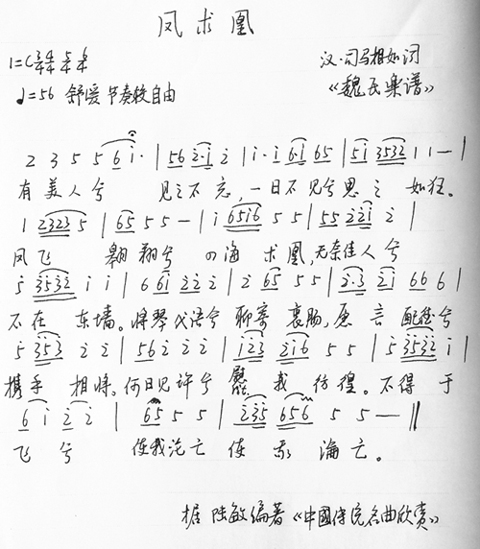 凤求凰
1=C 3/4 4/4 5/4 6/4 汉·司马相如词
♩=56 舒缓 节奏较自由 《魏氏樂谱》
2 3 5 5 6 i· | 56 2·i 2 | i·i 6i 65 | 5i 3532 1 1 — |
有美人兮 见之不忘,一日不见兮思之 如狂。
1 2323 5 | 65 5 5 — | i 6516 5 5 | 55 22i 2 |
凤飞 翱翔兮 四海 求凰,无奈佳人兮
5 3532 i i | 6 6i 22 2 | 2 65 5 5 | 2·3 2i 66 6 |
不在 东墙。将琴代语兮 聊寄 衷肠,愿言 配德兮
5 353 2 2 | 562 2 2 2 | i23 2i6 5 5 | 5 3532 i |
携手 相将。何日见许兮 慰 我 彷徨。不得 于
6 i 2 2 | 65 5 5 | 235 656 5 5 — ||
飞兮 使我沦亡 使 我 沦亡。
据 陆敏编著《中國传统名曲欣赏》